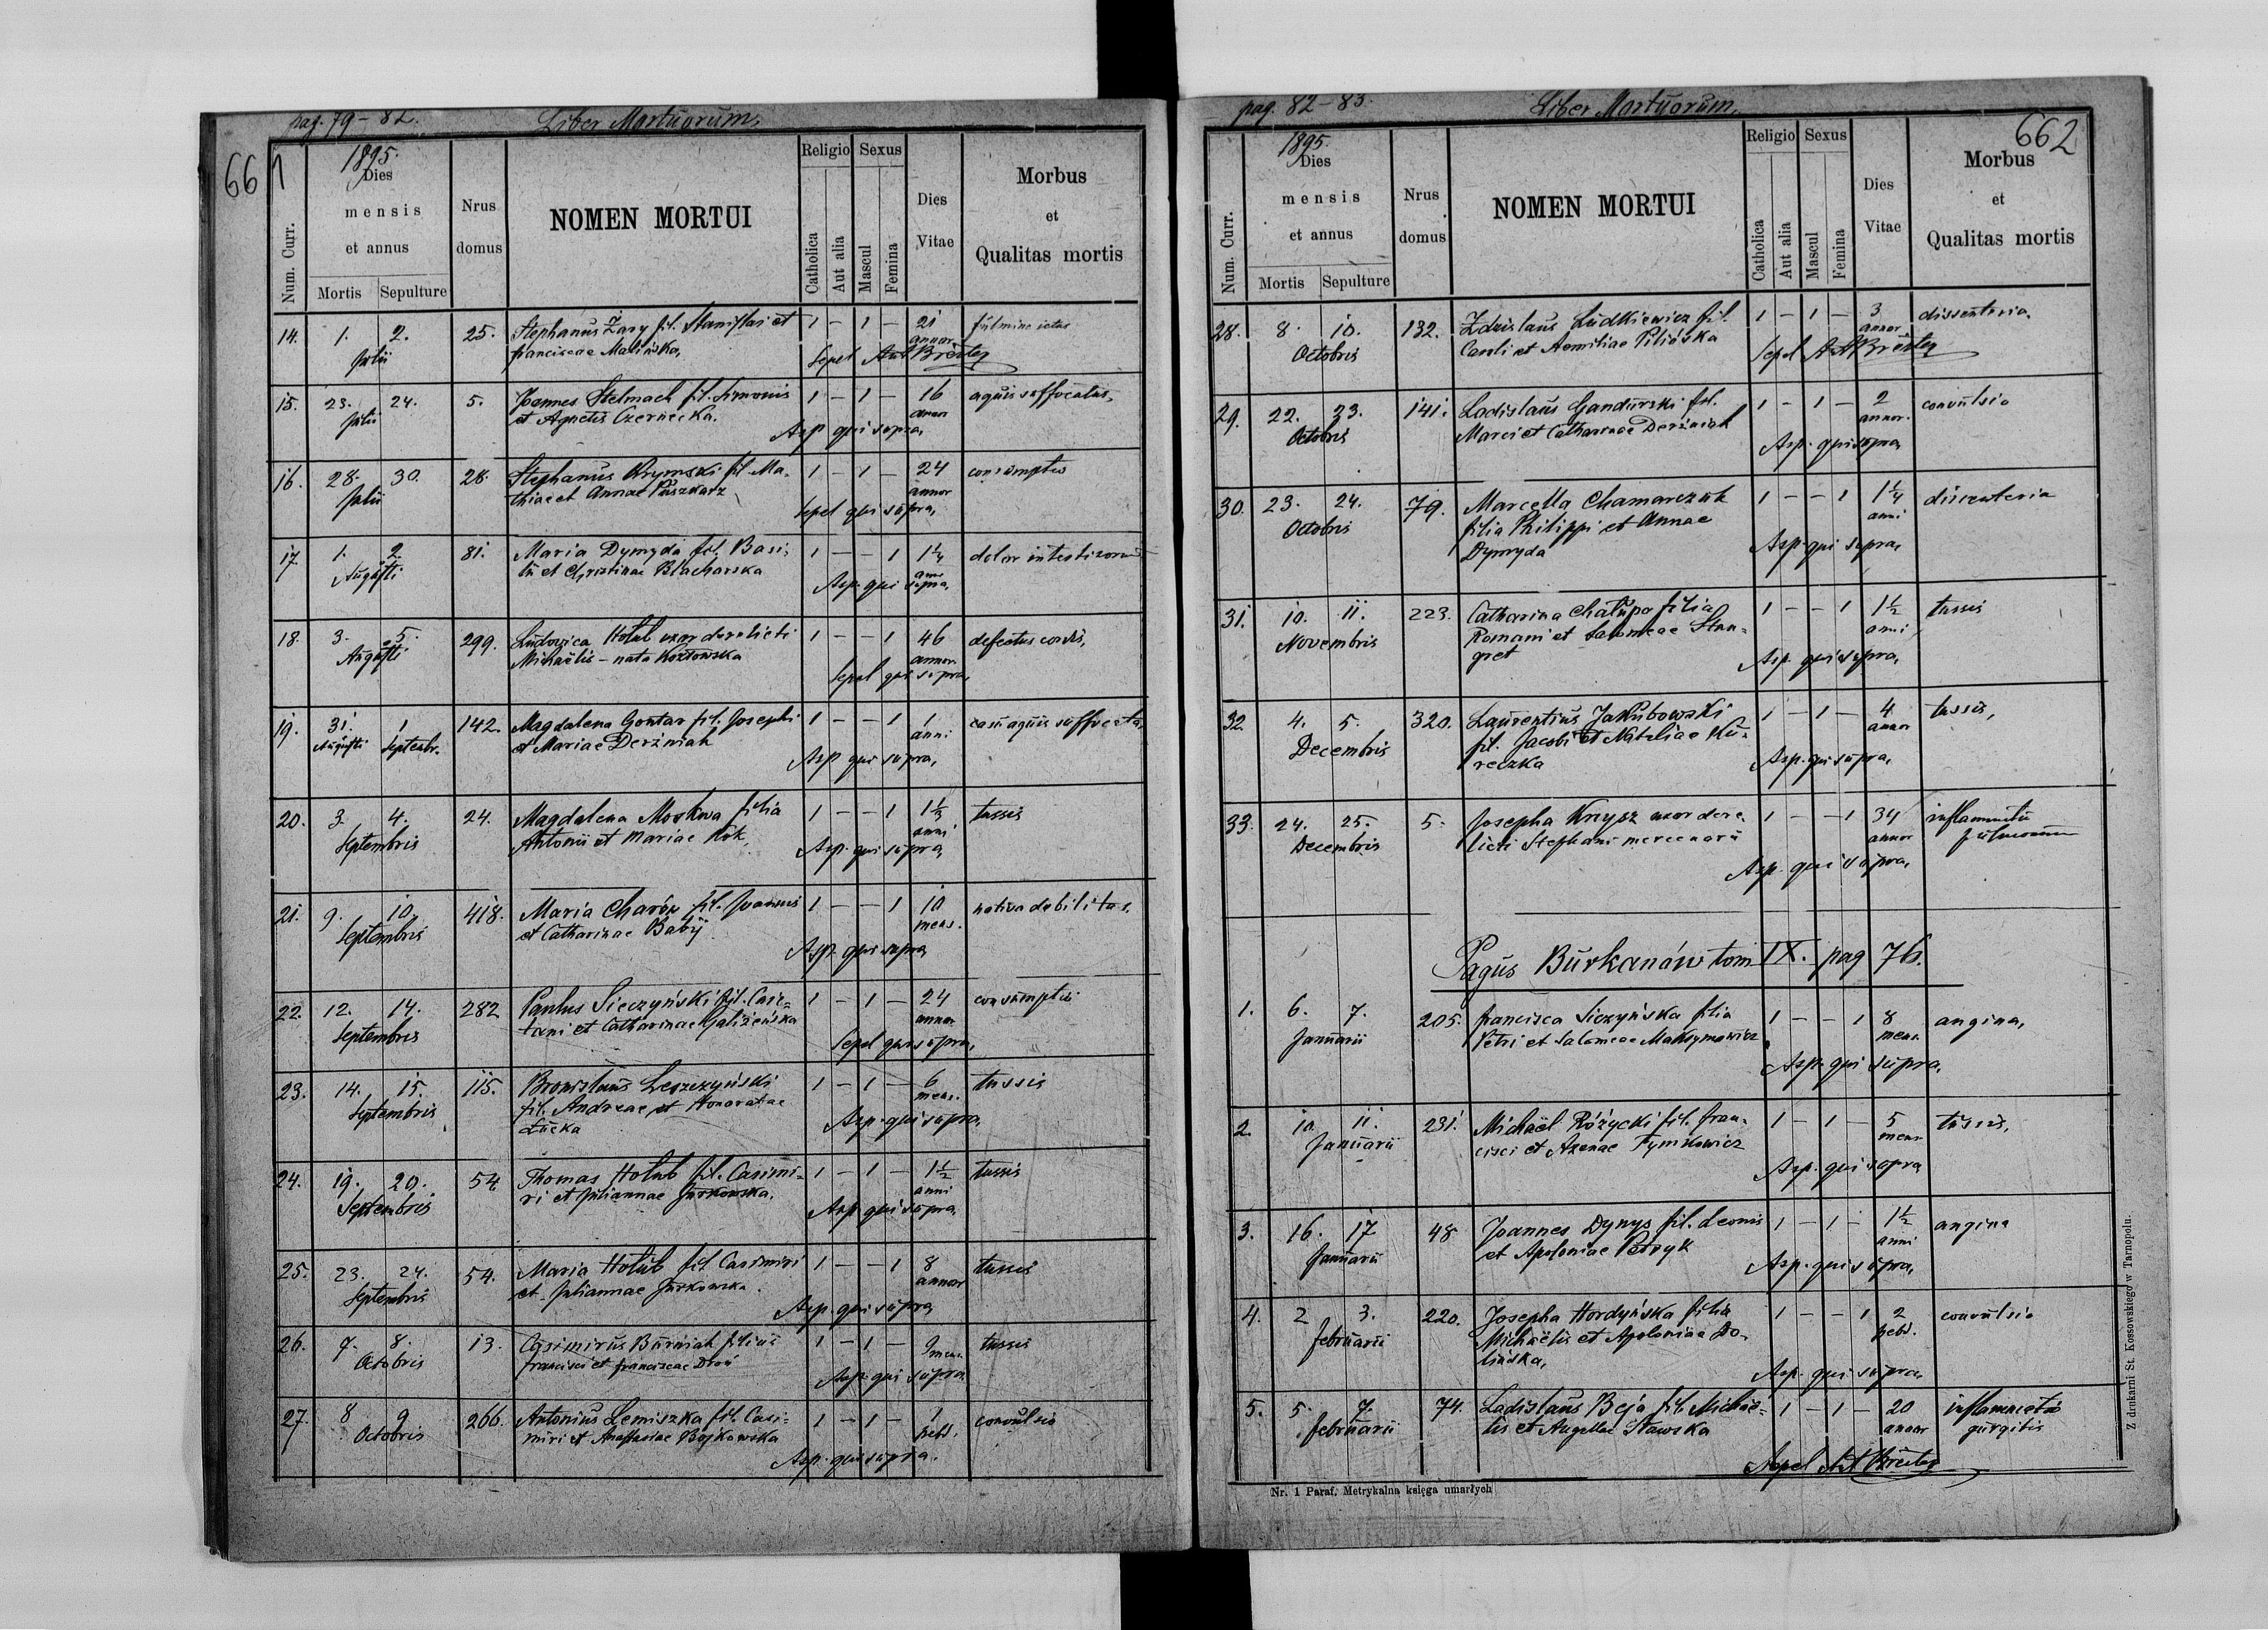 pag. 79 – 82.
Liber Mortuorum,
661
1895.
Num. Curr.
Dies
mensis
et annus
Mortis
Sepulture
Nrus
domus
NOMEN MORTUI
Religio
Sexus
Catholica
Aut alia
Mascul
Femina
Dies
Vitae
Morbus
et
Qualitas mortis
14. 1. 2. 25. Stephanus Żary fil. Stanislai et 1 – 1 – 21 fulmine ictus
Julii Franciscae Malińska, annor
Sepel
15. 23. 24. 5. Joannes Stelmach fil. Simonis 1 – 1 – 16 aquis suffocatus,
Julii et Agnetis Czernecka. annor
Asp qui supra,
16. 28. 30. 28. Stephanus Krymski fil. Ma- 1 – 1 – 24 consumptio
Julii thiae et Annae Puszkarz annor
Sepel qui supra,
17. 1. 2. 81. Maria Dymyda fil. Basi- 1 – – 1 1¼ dolor intestinorum
Augusti lii et Christinae Blacharska anni
Asp. qui supra,
18. 3. 5. 299. Ludovica Hołub uxor derelicti 1 – – 1 46 defectus cordis,
Augusti Michaëlis – nata Kozłowska annor
Sepel qui supra,
19. 31. 1 142. Magdalena Gontar fil. Josephi 1 – – 1 1 casu aquis suffocata,
Augusti Septembr. et Mariae Derżniak anni
Asp qui supra,
20. 3. 4. 24. Magdalena Moskwa filia 1 – – 1 1½ tussis
Septembris Antonii et Mariae Kok, anni
Asp. qui supra,
21. 9. 10. 418. Maria Charów fil. Joannis 1 – – 1 10 nativa debilitas.
Septembris et Catharinae Babij mens.
Asp. qui supra
22. 12. 14. 282 Paulus Sieczyński fil. Caie-
Septembris tani et Catharinae Galiżeńska 1 – 1 – 24 consumptio
annor
Sepel qui supra,
23. 14. 15. 115. Bronislaus Leszczyński 1 – 1 – 6 tussis
Septembris fil. Andreae et Honoratae mens.
Łucka
Asp. qui supra,
24. 19. 20. 54. Thomas Hołub fil. Casimi- 1 – 1 – 1½ tussis
Septembris ri et Juliannae Jurkowska. anni
Asp. qui supra,
25. 23. 24. 54. Maria Hołub fil. Casimiri 1 – – 1 8 tussis
Septembris et Juliannae Jurkowska. annor
Asp. qui supra,
26. 7. 8. 13. Casimirus Burniak filius 1 – 1 – 9 tussis
Octobris Francisci et Franciscae mens.
Asp. qui supra
27. 8 9 266. Antonius Lemiszka fil. Casi- 1 – 1 – 1 convulsio
Octobris miri et Anastasiae Bojkowska hebd.
Asp. qui supra.
pag. 82 – 83.
Liber Mortuorum,
662
1895.
Num. Curr.
Dies
mensis
et annus
Mortis
Sepulture
Nrus
domus
NOMEN MORTUI
Religio
Sexus
Catholica
Aut alia
Mascul
Femina
Dies
Vitae
Morbus
et
Qualitas mortis
28. 8. 10. 132. Zdzislaus Ludkiewicz fil. 1 – 1 – 3 dissenteria.
Octobris Caroli et Aemiliae Pilińska annor
Sepel
29. 22. 23. 141. Ladislaus Gandurski fil. 1 – 1 – 2 convulsio
Octobris Marci et Catharinae Derżniak annor.
Asp. qui supra
30. 23. 24. 79. Marcella Chamarczuk 1 – – 1 1¼ dissenteria
Octobris filia Philippi et Annae anni
Dymyda
Asp. qui supra,
31. 10. 11. 223. Catharina Chałupa filia 1 – – 1 1½ tussis
Novembris Romani et Salomeae Stan- anni
gret
Asp. qui supra,
32. 4. 5. 320. Laurentius Jakubowski 1 – 1 – 4 tussis,
Decembris fil. Jacobi et Nataliae Ku- annor
reczka
Asp. qui supra,
33. 24. 25. 5. Josepha Knysz uxor dere- 1 – – 1 34 inflammatio
Decembris licti Stephani mercenarii annor pulmonum
Asp. qui supra,
Pagus Burkanów tom IX. pag 76.
1. 6. 7. 205. Francisca Siczyńska filia 1 – – 1 8 angina,
Januarii Petri et Salomeae Maksymowicz mens.
Asp. qui supra,
2. 10. 11. 231. Michaël Różycki fil. Fran- 1 – 1 – 5 tussis,
Januarii cisci et Tymkowicz mens
Asp. qui supra
3. 16. 17 48 Joannes Dynys fil. Leonis 1 – 1 – 1½ angina
Januarii et Apoloniae Petryk anni
Asp. qui supra,
4. 2 3. 220. Josepha Hordyńska filia 1 – – 1 2 convulsio
Februarii Michaëlis et Apoloniae Do- hebd.
lińska,
Asp. qui supra,
5. 5. 7. 74. Ladislaus Beja fil. Michaë- 1 – 1 – 20 inflammatio
Februarii lis et Angellae Stawska annor gurgitis
Nr. 1 Paraf. Metrykalna księga umarłych
Z drukarni St. Kossowskiego w Tarnopolu.